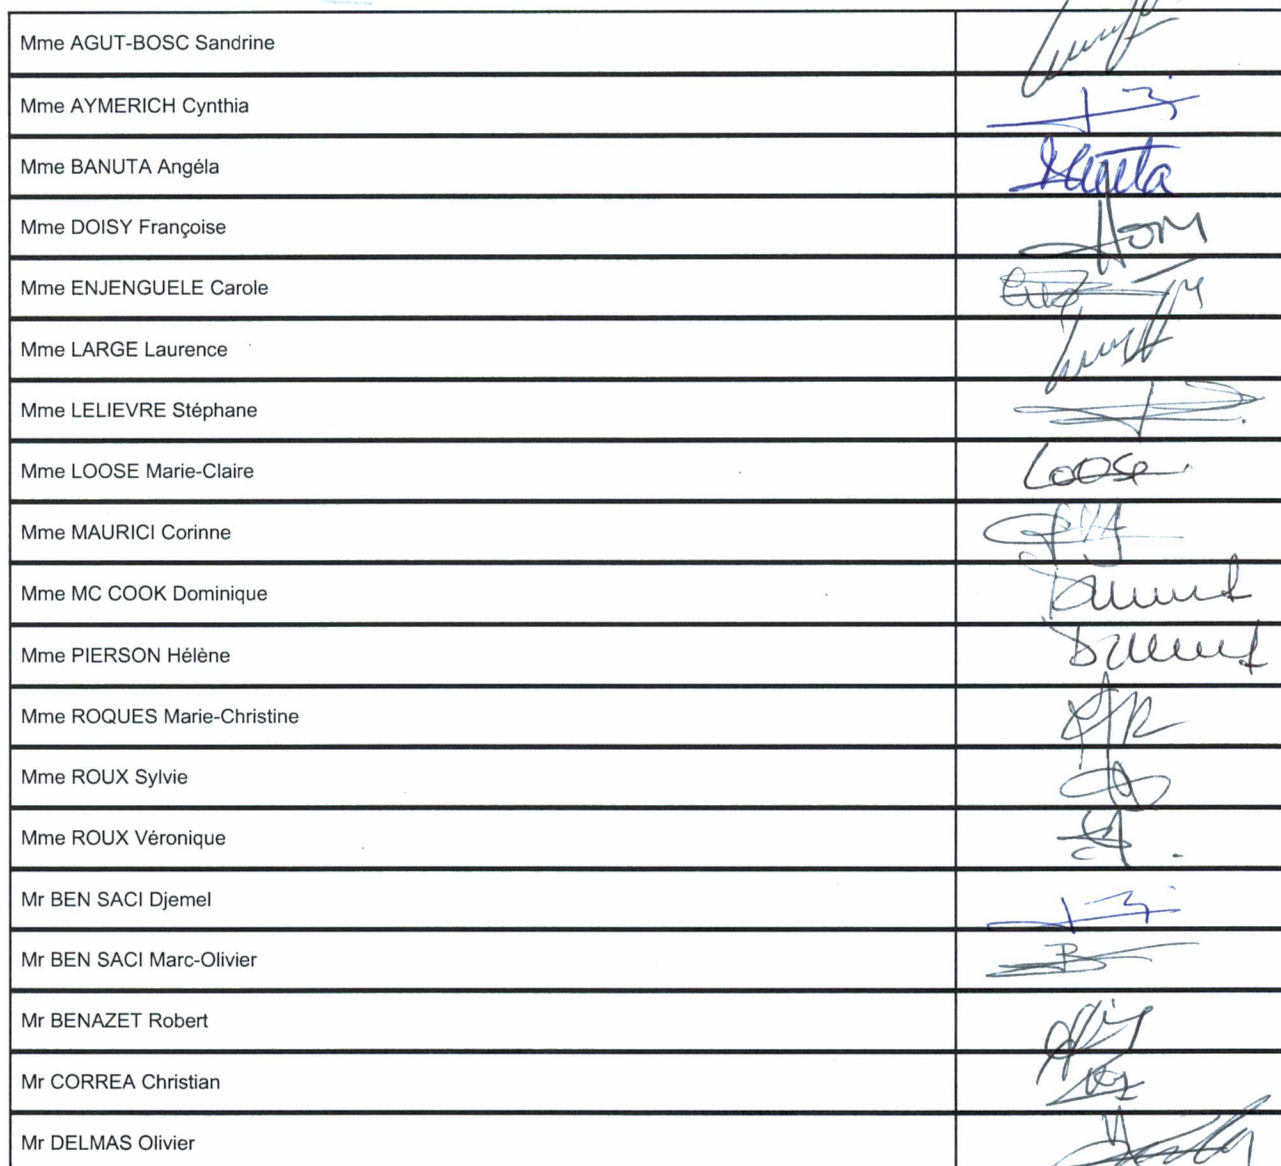 Mme AGUT-BOSC Sandrine
Mme AYMERICH Cynthia
Mme BANUTA Angéla
Mme DOISY Françoise
Mme ENJENGUELE Carole
Mme LARGE Laurence
Mme LELIEVRE Stéphane
Mme LOOSE Marie-Claire Loose
Mme MAURICI Corinne
Mme MC COOK Dominique
Mme PIERSON Hélène
Mme ROQUES Marie-Christine
Mme ROUX Sylvie
Mme ROUX Véronique
Mr BEN SACI Djemel
Mr BEN SACI Marc-Olivier
Mr BENAZET Robert
Mr CORREA Christian
Mr DELMAS Olivier